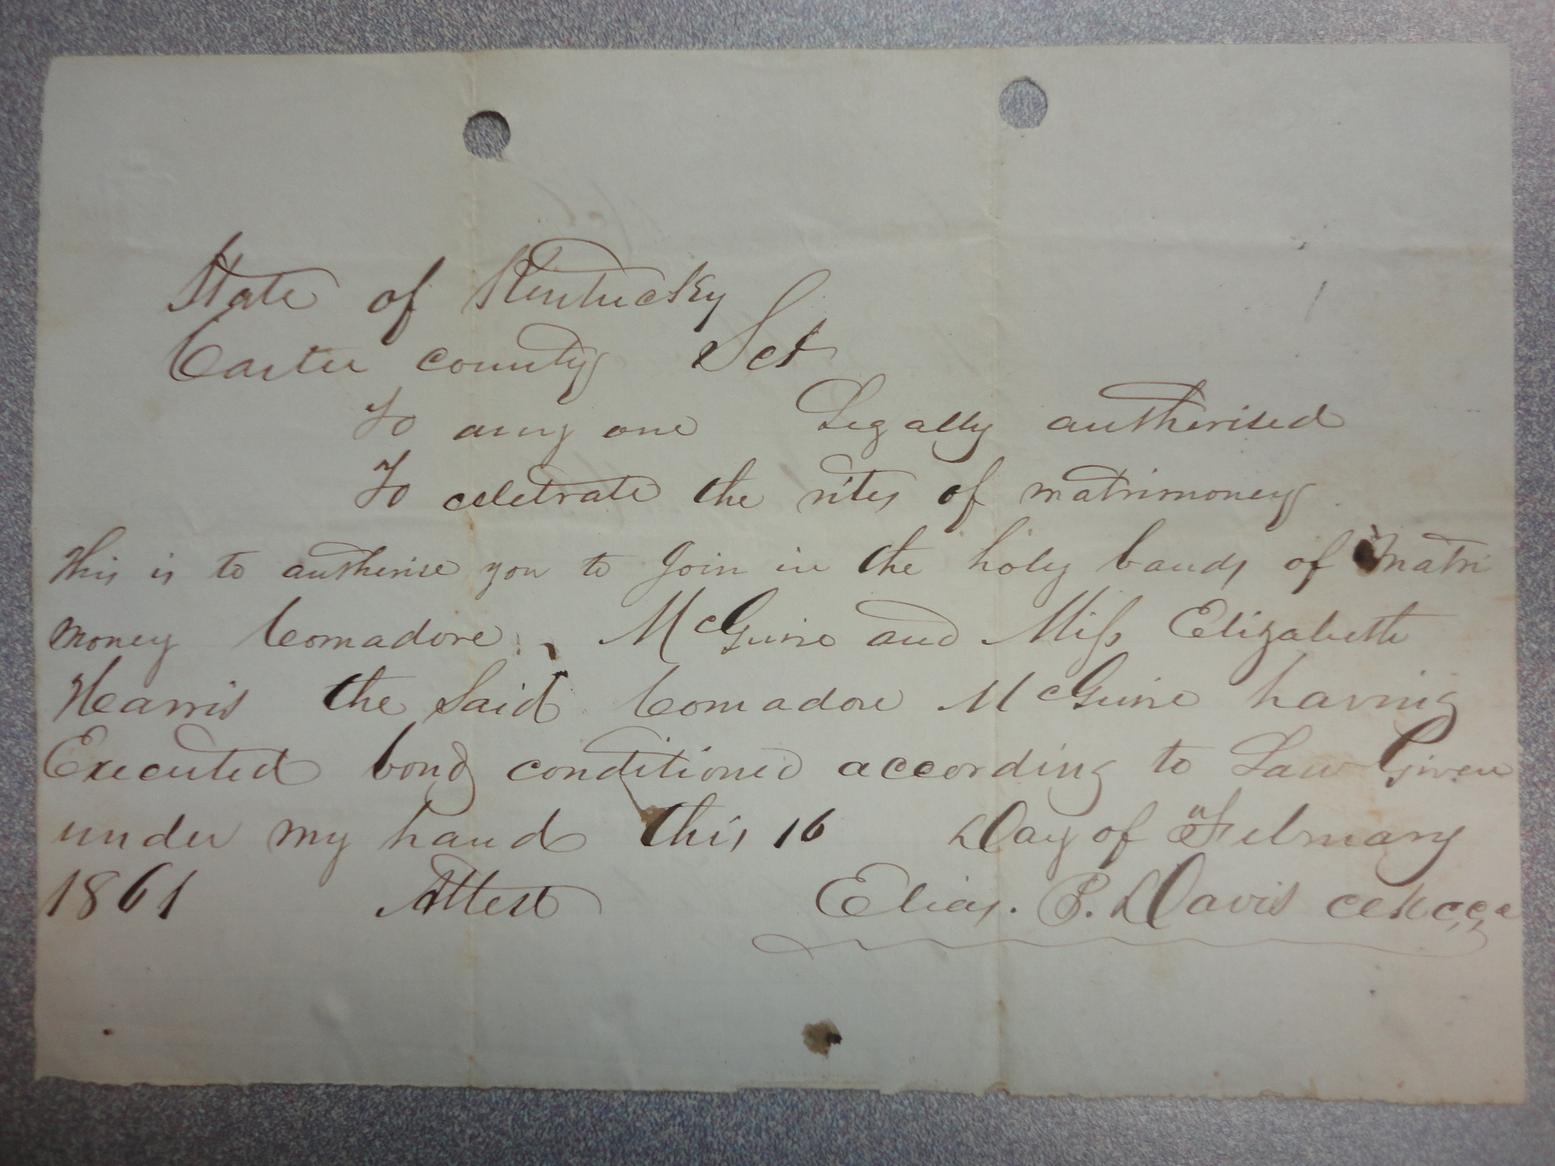 State of Kentucky
Carter county Sct
To any one Legally authorised
To celebrate the rites of matrimoney
This is to autherise you to Join in the holy bands of Matri
money Comadore McGuire and Miss Elizabeth
Harris the Said Comadore McGuire having
Executed bond conditioned according to Law Given
under my hand this 16 Day of February
1861 Attest Elias. P. Davis